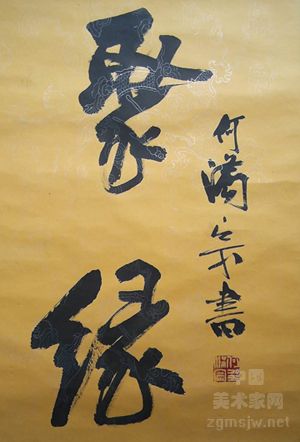 聚缘
何满宗书
中国
美术家网
zgmsjw.net